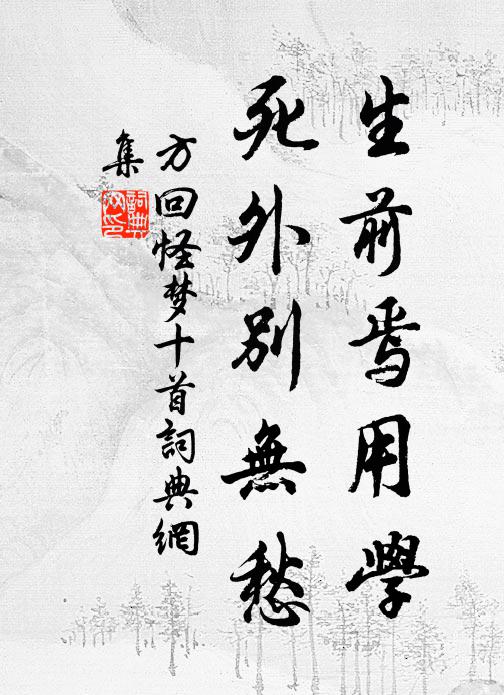 生前焉用學
死外別無愁
方回怪梦十首詞典網
集
詞典
网印